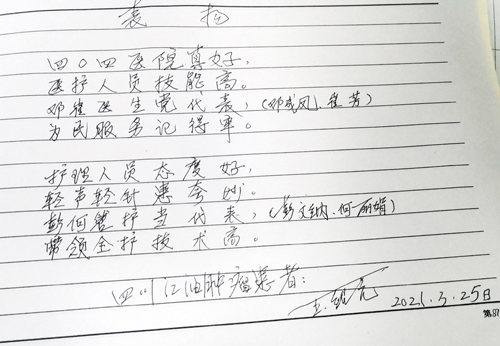 表扬
四〇四医院真好，
医护人员技能高。
邓崔医生党代表，（邓成凤、崔芳）
为民服务记得牢。
护理人员态度好，
轻声轻针患夸妙。
彭何管护当代表，（彭文纳、何丽娟）
带领全护技术高。
四川江油肿瘤患者：
2021.3.25日